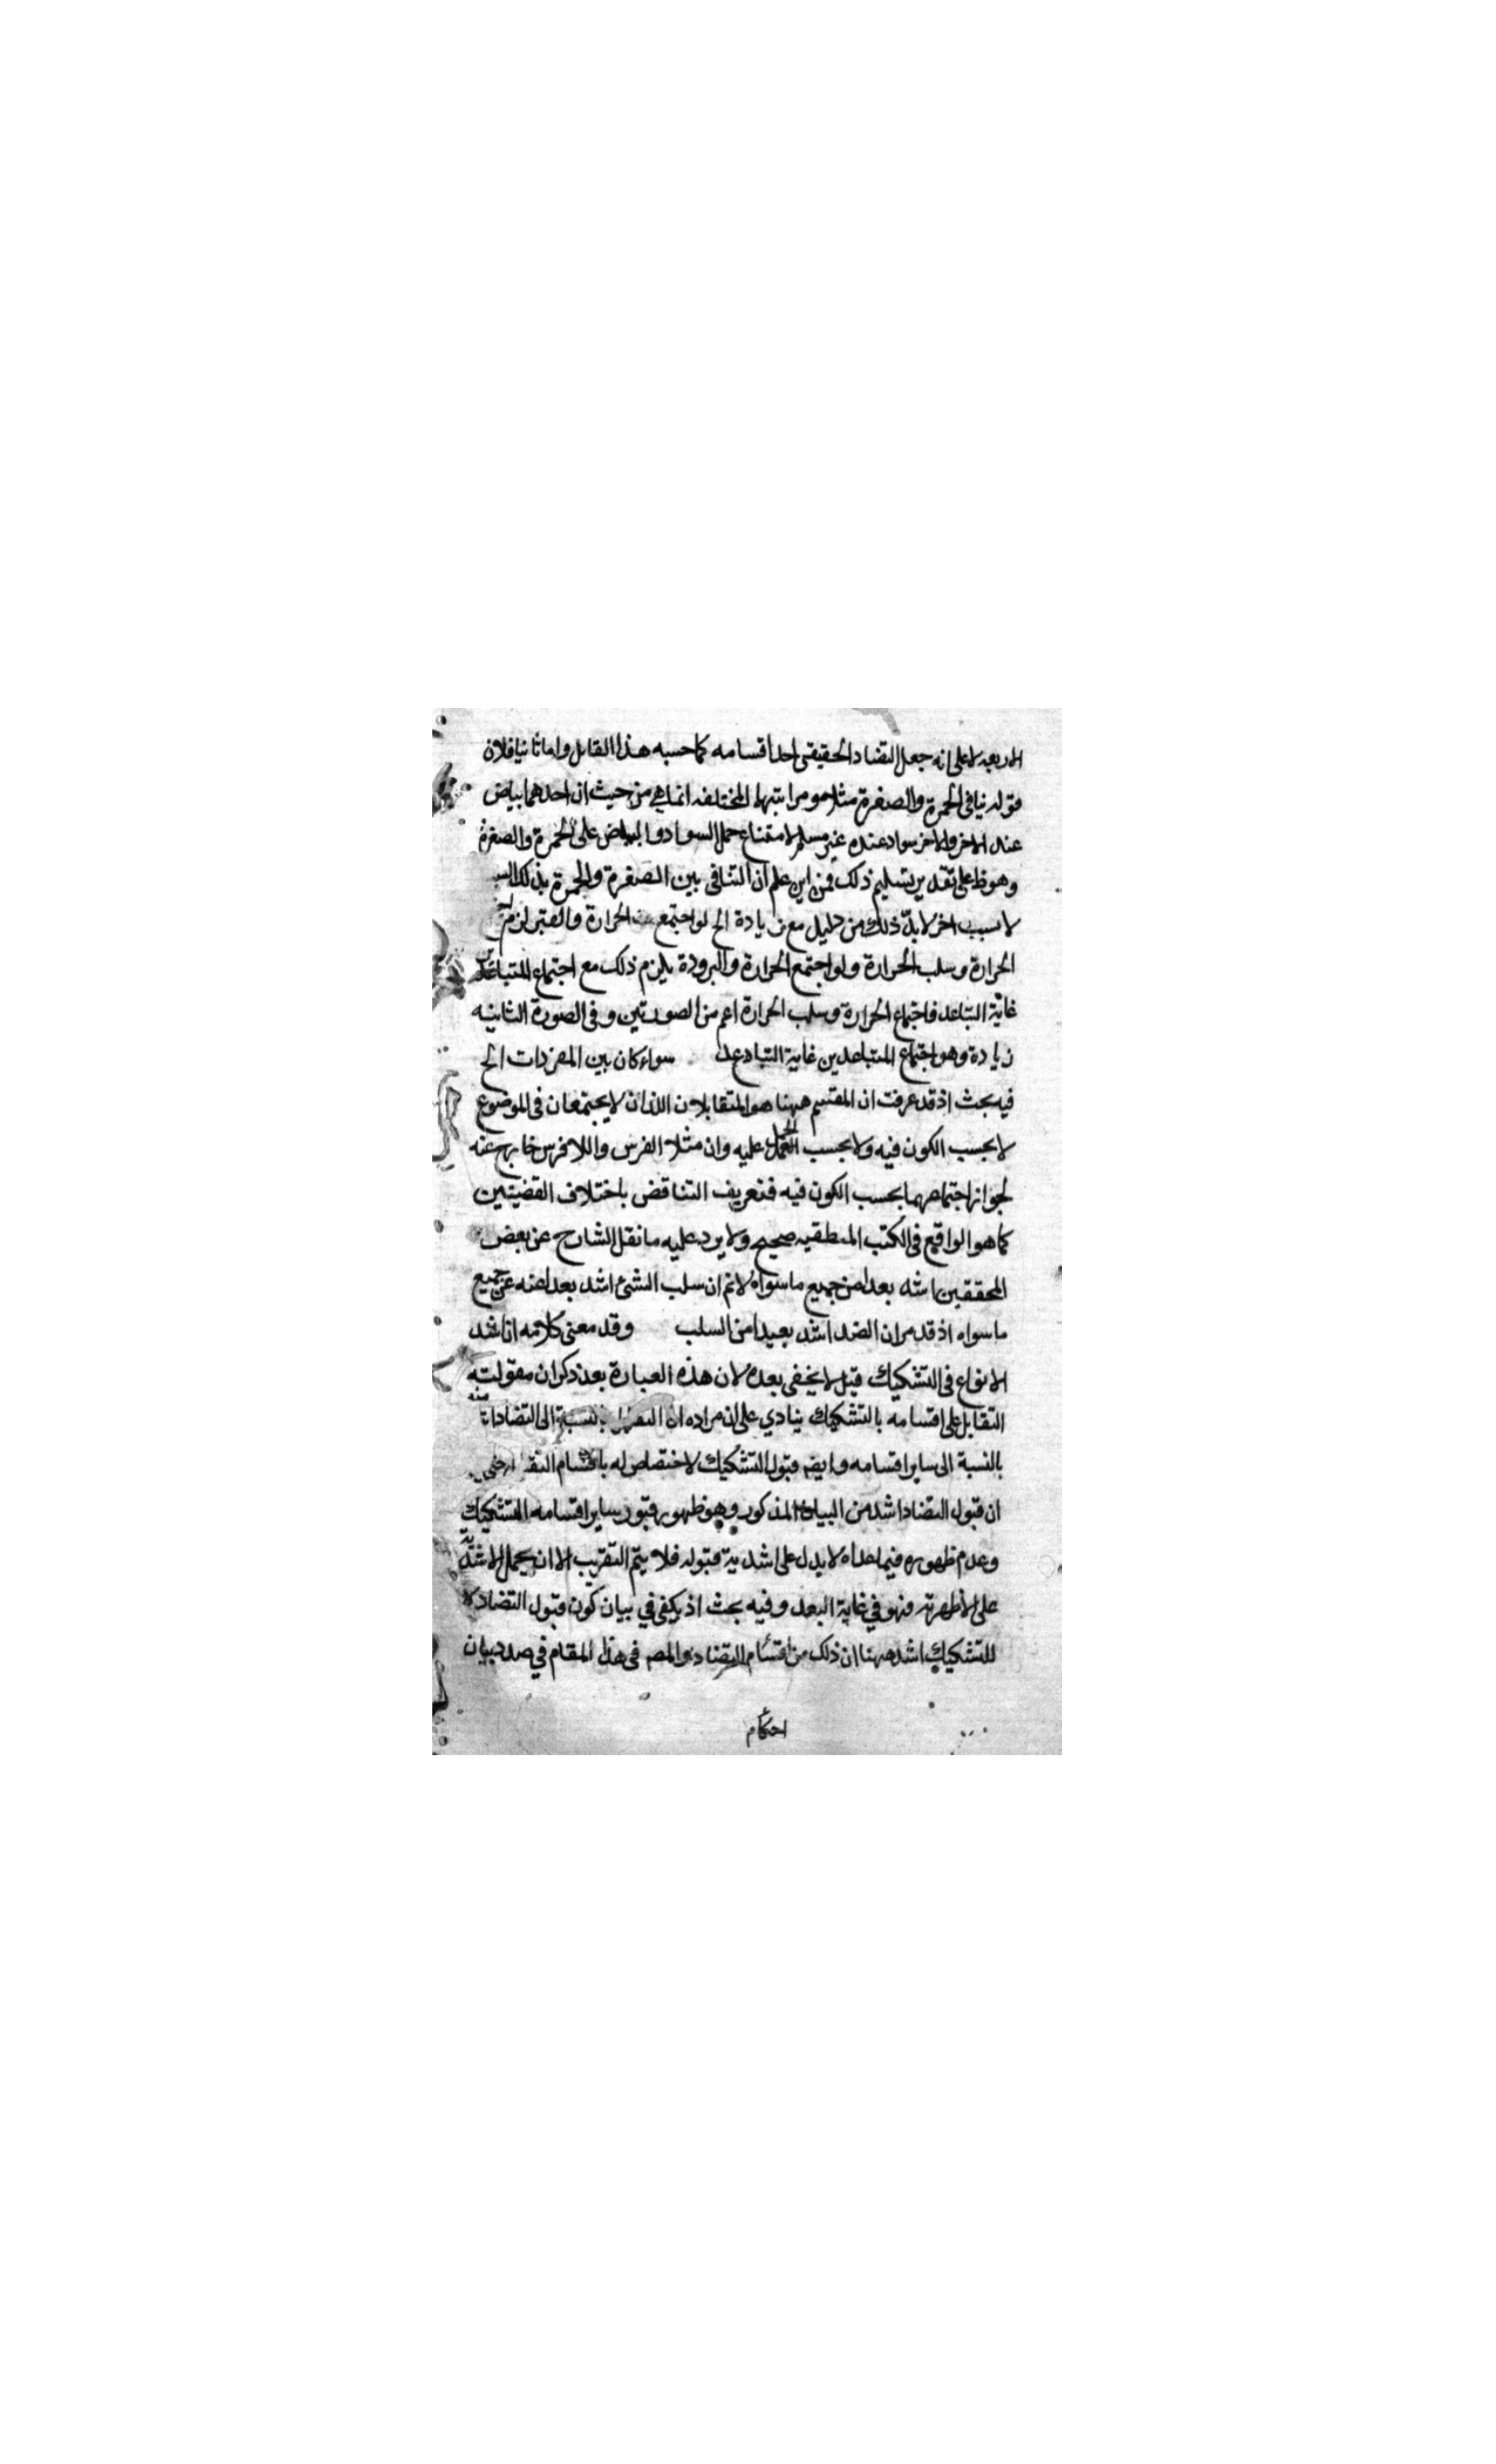 الاربعه لا على انه جعل التضاد الحقيقى احد اقسامه كما حسبه هذا القائل واما ثانيا فلان
قوله تنافى الحمرة والصفرة مثلا ومراتبها المختلفه انما هى من حيث ان احدهما بياض
عند الاخر والاخر سواد عنده غير مسلم لامتناع حمل السواد والبياض على الحمرة والصفرة
وهو ظ على تقدير تسليم ذلك فمن اين علم ان التنافى بين الصفرة والحمرة بذلك السبب
لا سبب اخر لا بد ذلك من دليل مع زيادة الخ لو اجتمع الحرارة والفتر لزم
الحرارة وسلب الحرارة ولو اجتمع الحرارة والبرودة يلزم ذلك مع اجتماع المتباعدين
غاية التباعد فاجتماع الحرارة وسلب الحرارة اعم من الصورتين وفى الصورة الثانيه
زيادة وهو اجتماع المتباعدين غاية التبادعد سواء كان بين المفردات الخ
فيه بحث اذ قد عرفت ان المقسم ههنا هو المتقابلان اللذان لا يجتمعان فى الموضوع
لا بحسب الكون فيه ولا بحسب الحمل عليه وان مثلا الفرس واللا فرس خارج عنه
لجواز اجتماعهما بحسب الكون فيه فتعريف التناقض باختلاف القضيتين
كما هو الواقع فى الكتب المنطقيه صحيح ولا يرد عليه ما نقل الشارح عن بعض
المحققين اشد بعدا من جميع ما سواه لا نم ان سلب الشئ اشد بعدا عنه عن جميع
ما سواه اذ قد مر ان الضد اشد بعيدا من السلب وقد معنى كلامه ان اشد
الانواع فى التشكيك قيل لا يخفى بعده لان هذه العبارة بعد ذكر ان مقولية
التقابل على اقسامه بالتشكيك ينادي على ان مراده ان بالنسبة الى التضاد اشد منه
بالنسبة الى ساير اقسامه وايضه قبول التشكيك لا اختصاص له باقسام
ان قبول التضاد اشد من البيان المذكور وهو ظهور قبول ساير اقسامه التشكيك
وعدم ظهوره فيما عداه لا يدل على اشدية قبوله فلا يتم التقريب الا ان يحمل الاشدية
على الاظهرية فهو في غاية البعد وفيه بحث اذ يكفي في بيان كون قبول التضاد
للتشكيك اشد ههنا ان ذلك من اقسام التضاد والمص فى هذا المقام في صدد بيان
احكام